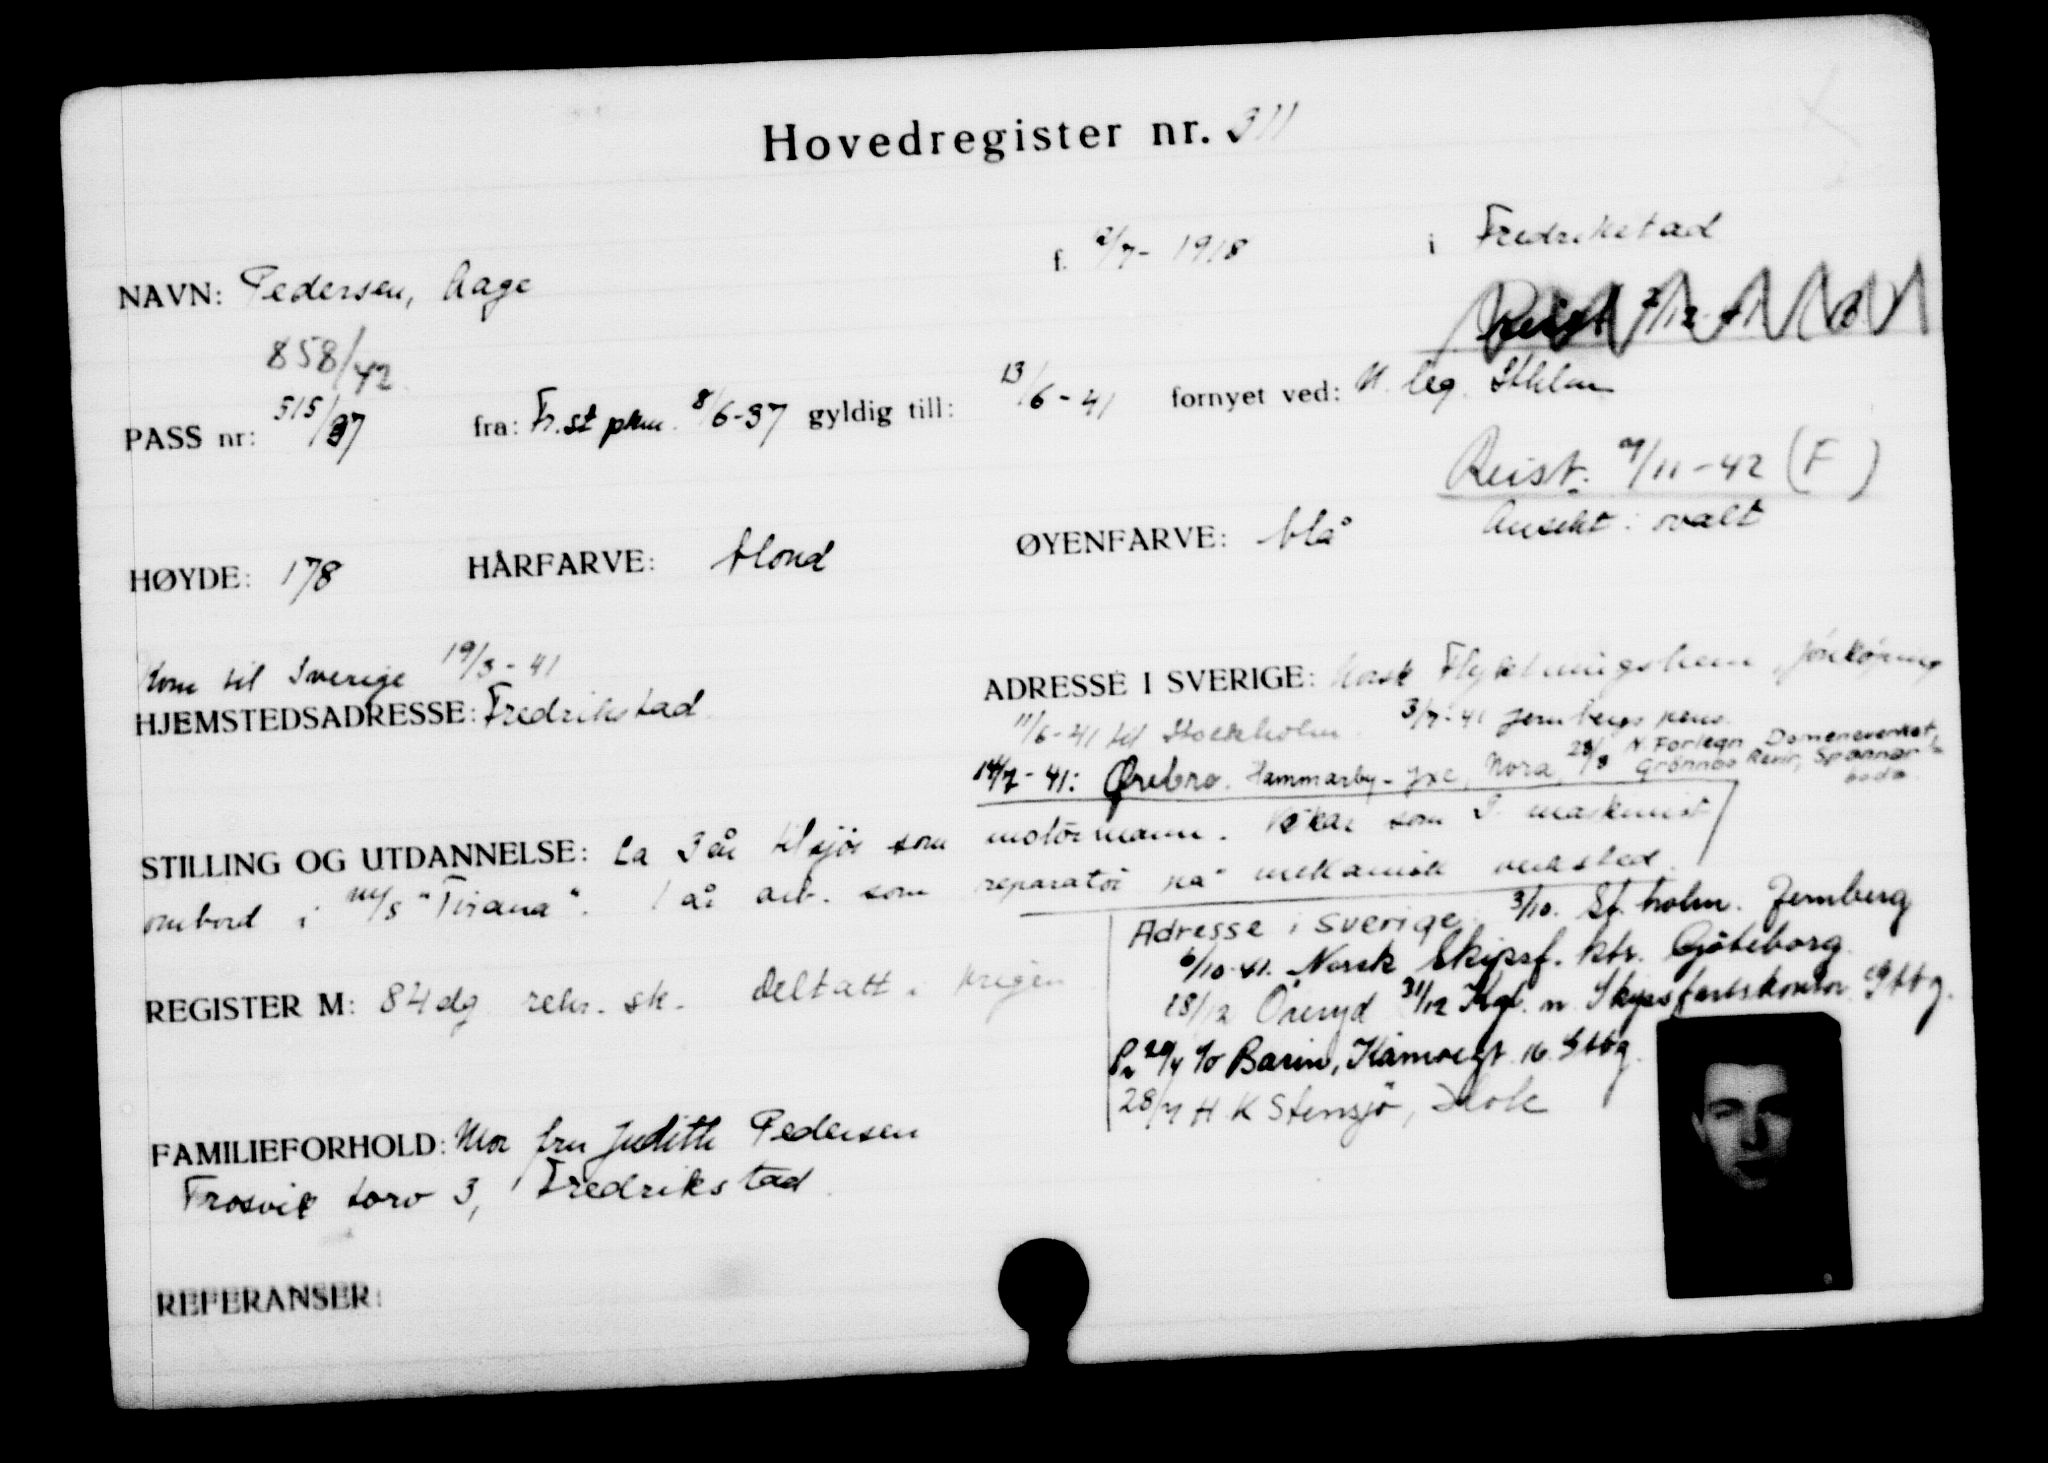 Hovedregister nr. 311
NAVN: Pedersen, Aage f. 2/7- 1918 i Fredrikstad
Reist 2/12-41
858/42
PASS nr: 515/37 fra: Fr.st pkm. 8/6-37 gyldig till: 13/6-41 fornyet ved: N. leg. Sthlm
Reist. 9/11-42 (F)
HØYDE: 178 HÅRFARVE: blond ØYENFARVE: blå Ansikt: ovalt
Kom til Sverige 19/3-41
HJEMSTEDSADRESSE: Fredrikstad
ADRESSE I SVERIGE: Norsk Flyktningshem, Jönköping
11/6-41 til Stockholm. 3/7-41 Jernbergs pens.
14/7-41: Örebro. Hammarby-Yxe, Nora, 28/8 N. Forlegn Domeneverket, Grönnbo Revir, Spannarboda.
STILLING OG UTDANNELSE: Ca 3 år tilsjös som motormann. Vikar som I. maskinist
ombord i m/s "Tirana". 1 år arb. som reparatör på mekanisk verksted.
REGISTER M: 84 dg. rekr. sk. Deltatt i krigen
Adresse i Sverige: 3/10. St.holm. Jernberg
6/10-41. Norsk Skipsf. ktr. Göteborg.
28/12 Öreryd 31/12 Kgl. n. Skipsfartskontor Gtbg.
Pr 20/4 c/o Barin, 16 Gtbg.
28/7 H K Stensjö,
FAMILIEFORHOLD: Mor fru Judith Pedersen
Trosvik torv 3, Fredrikstad
REFERANSER: